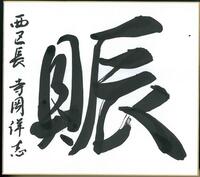 賑
西区長 寺岡洋志